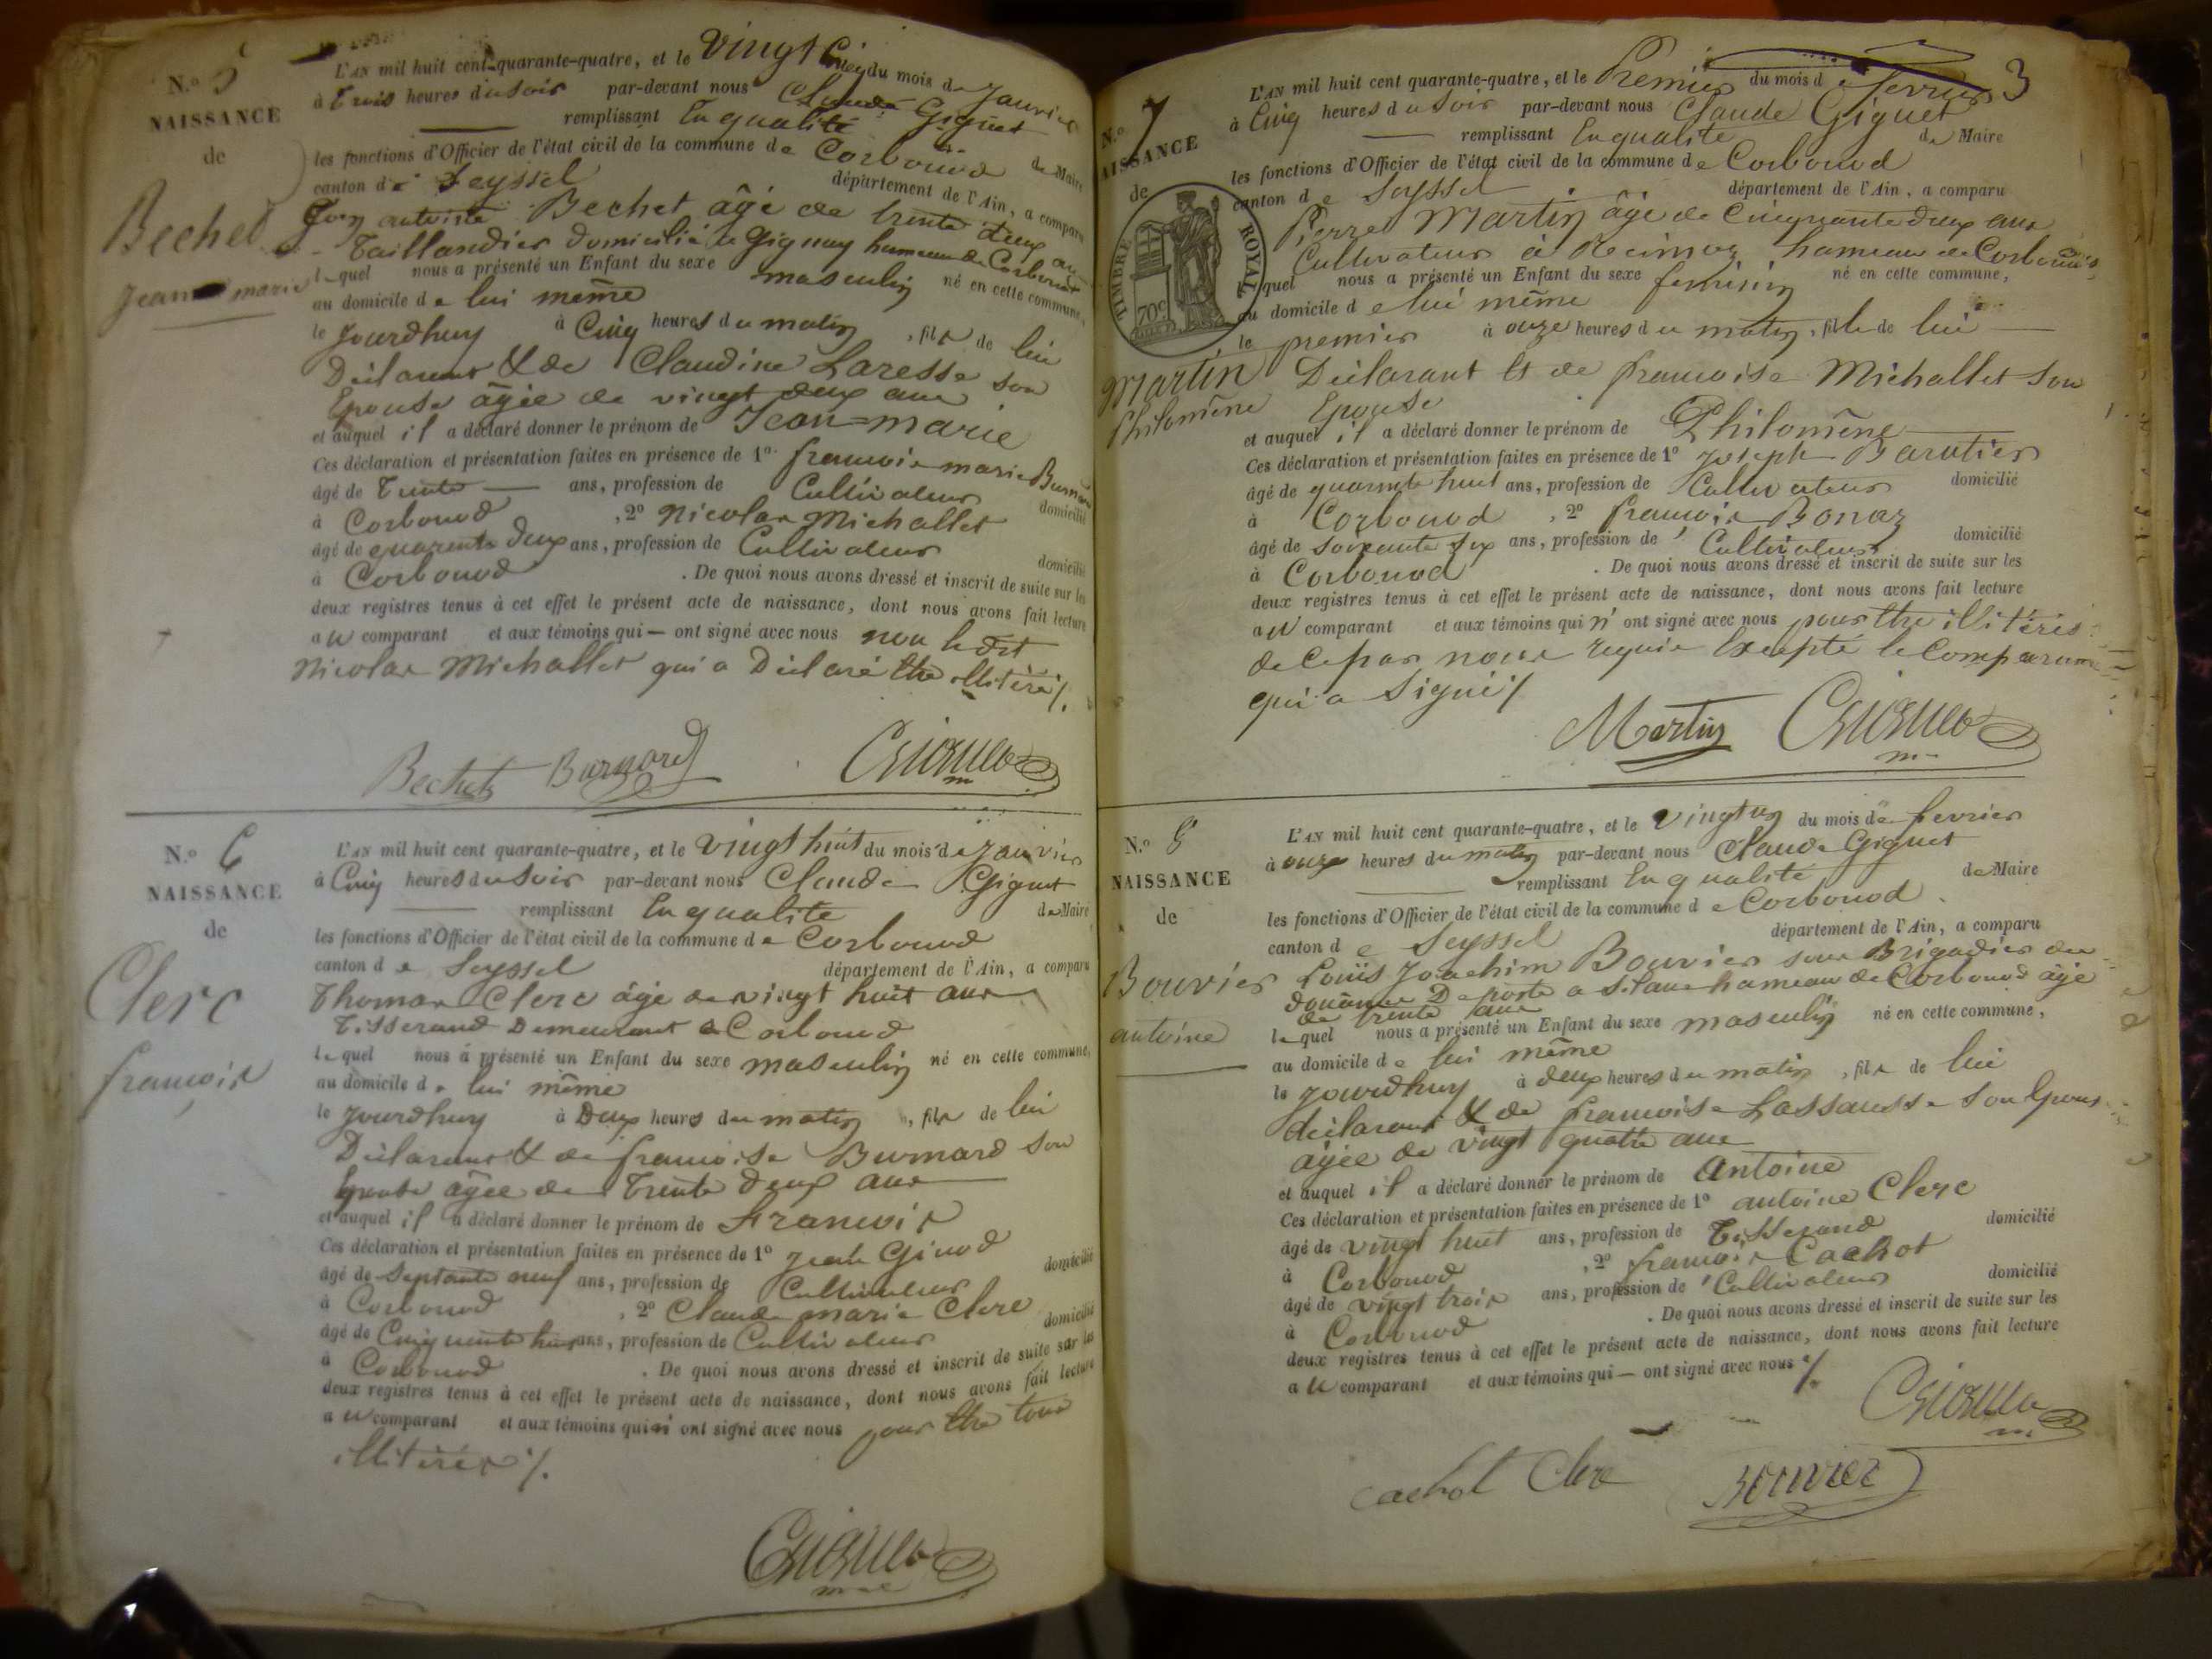 N.o 5
NAISSANCE
de
Bechet
Jean marie
L'AN mil huit cent quarante-quatre, et le vingt Cinq du mois de Janvier
à trois heures du soir par-devant nous Claude Giguet
remplissant En qualité de Maire
les fonctions d'Officier de l'état civil de la commune de Corbonod
canton de Seyssel département de l'Ain, a comparu
antoine Bechet âgé de trente deux ans
Taillandier domicilié à Gignay hameau de Corbonod
lequel nous a présenté un Enfant du sexe masculin né en cette commune,
au domicile de lui même
le Jourdhuy à Cinq heures du matin, fils de lui
Déclarant & de Claudine Laresse son
Epouse âgée de vingt deux ans
et auquel il a déclaré donner le prénom de Jean=marie
Ces déclaration et présentation faites en présence de 1o francois marie Burnard
âgé de trente ans, profession de Cultivateur domicilié
à Corbonod, 2o Nicolas Michallet
âgé de quarante deux ans, profession de Cultivateur domicilié
à Corbonod. De quoi nous avons dressé et inscrit de suite sur les
deux registres tenus à cet effet le présent acte de naissance, dont nous avons fait lecture
au comparant et aux témoins qui — ont signé avec nous non ledit
Nicolas Michallet qui a Déclaré Etre illitéré /.
Bechet Burnard Giguet
N.o 6
NAISSANCE
de
Clerc
francois
L'AN mil huit cent quarante-quatre, et le vingt huit du mois de Janvier
à Cinq heures du soir par-devant nous Claude Giguet
remplissant En qualité de Maire
les fonctions d'Officier de l'état civil de la commune de Corbonod
canton de Seyssel département de l'Ain, a comparu
Thomas Clerc âgé de vingt huit ans
Tisserand Demeurant à Corbonod
lequel nous a présenté un Enfant du sexe masculin né en cette commune,
au domicile de lui même
le Jourdhuy à Deux heures du matin, fils de lui
Déclarant & de francoise Burnard son
Epouse âgée de Trente deux ans
et auquel il a déclaré donner le prénom de Francois
Ces déclaration et présentation faites en présence de 1o Jean Ginod
âgé de Septante neuf ans, profession de Cultivateur domicilié
à Corbonod, 2o Claude marie Clerc
âgé de Cinquante huit ans, profession de Cultivateur domicilié
à Corbonod. De quoi nous avons dressé et inscrit de suite sur les
deux registres tenus à cet effet le présent acte de naissance, dont nous avons fait lecture
au comparant et aux témoins qui n' ont signé avec nous pour Etre tous
illitérés /.
Giguet
3
N.o 7
NAISSANCE
de
TIMBRE ROYAL
70c
Martin
Philomène
L'AN mil huit cent quarante-quatre, et le Premier du mois de fevrier
à Cinq heures du soir par-devant nous Claude Giguet
remplissant En qualité de Maire
les fonctions d'Officier de l'état civil de la commune de Corbonod
canton de Seyssel département de l'Ain, a comparu
Pierre Martin âgé de Cinquante deux ans
Cultivateur à hameau de Corbonod
lequel nous a présenté un Enfant du sexe feminin né en cette commune,
au domicile de lui même
le premier à onze heures du matin, fille de lui
Déclarant Et de francoise Michallet son
Epouse
et auquel il a déclaré donner le prénom de Philomène
Ces déclaration et présentation faites en présence de 1o Joseph Barutier
âgé de quarante huit ans, profession de Cultivateur domicilié
à Corbonod, 2o francois Bonaz
âgé de soixante six ans, profession de Cultivateur domicilié
à Corbonod. De quoi nous avons dressé et inscrit de suite sur les
deux registres tenus à cet effet le présent acte de naissance, dont nous avons fait lecture
au comparant et aux témoins qui n' ont signé avec nous pour Etre illitérés
de ce par nous requis Excepté le Comparant
qui a Signé /
Martin Giguet
N.o 8
NAISSANCE
de
Bouvier
antoine
L'AN mil huit cent quarante-quatre, et le vingt un du mois de fevrier
à onze heures du matin par-devant nous Claude Giguet
remplissant En qualité de Maire
les fonctions d'Officier de l'état civil de la commune de Corbonod
canton de Seyssel département de l'Ain, a comparu
Louis Joachim Bouvier sous Brigadier des
douanes De poste a hameau de Corbonod âgé
de trente ans
lequel nous a présenté un Enfant du sexe masculin né en cette commune,
au domicile de lui même
le jourdhuy à deux heures du matin, fils de lui
déclarant & de francoise Lassausse son Epouse
âgée de vingt quatre ans
et auquel il a déclaré donner le prénom de Antoine
Ces déclaration et présentation faites en présence de 1o antoine Clerc
âgé de vingt huit ans, profession de Tisserand domicilié
à Corbonod, 2o francois Cachot
âgé de vingt trois ans, profession de Cultivateur domicilié
à Corbonod. De quoi nous avons dressé et inscrit de suite sur les
deux registres tenus à cet effet le présent acte de naissance, dont nous avons fait lecture
au comparant et aux témoins qui — ont signé avec nous /.
Giguet
Cachot Clerc Bouvier